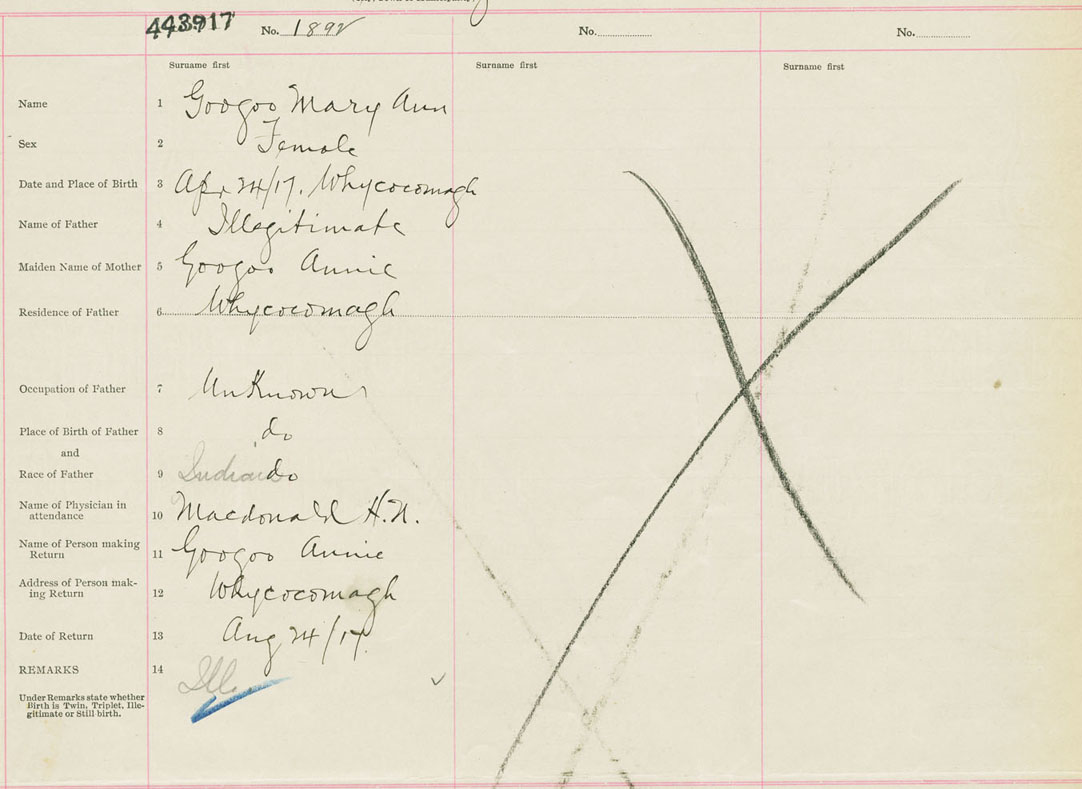 443917 No. 1892 No. No.
Surname first Surname first Surname first
Name 1 Googoo Mary Ann
Sex 2 Female
Date and Place of Birth 3 Apr 24/17. Whycocomagh
Name of Father 4 Illegitimate
Maiden Name of Mother 5 Googoo Annie
Residence of Father 6 Whycocomagh
Occupation of Father 7 Unknown
Place of Birth of Father 8 do
and
Race of Father 9 Indian do
Name of Physician in
attendance 10 Macdonald H.N.
Name of Person making
Return 11 Googoo Annie
Address of Person mak-
ing Return 12 Whycocomagh
Date of Return 13 Aug 24/17.
REMARKS 14 Ill.
Under Remarks state whether
Birth is Twin, Triplet, Ille-
gitimate or Still birth.